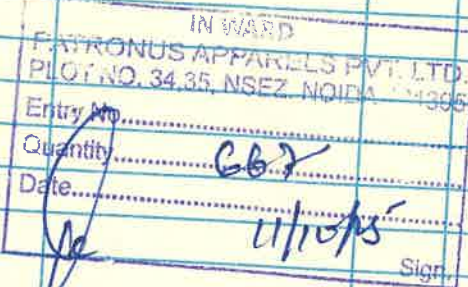 IN WARD
PATRONUS APPARELS PVT. LTD.
PLOT NO. 34,35, NSEZ NOIDA
Entry No.
Quantity
Date 11/10/25
Sign.